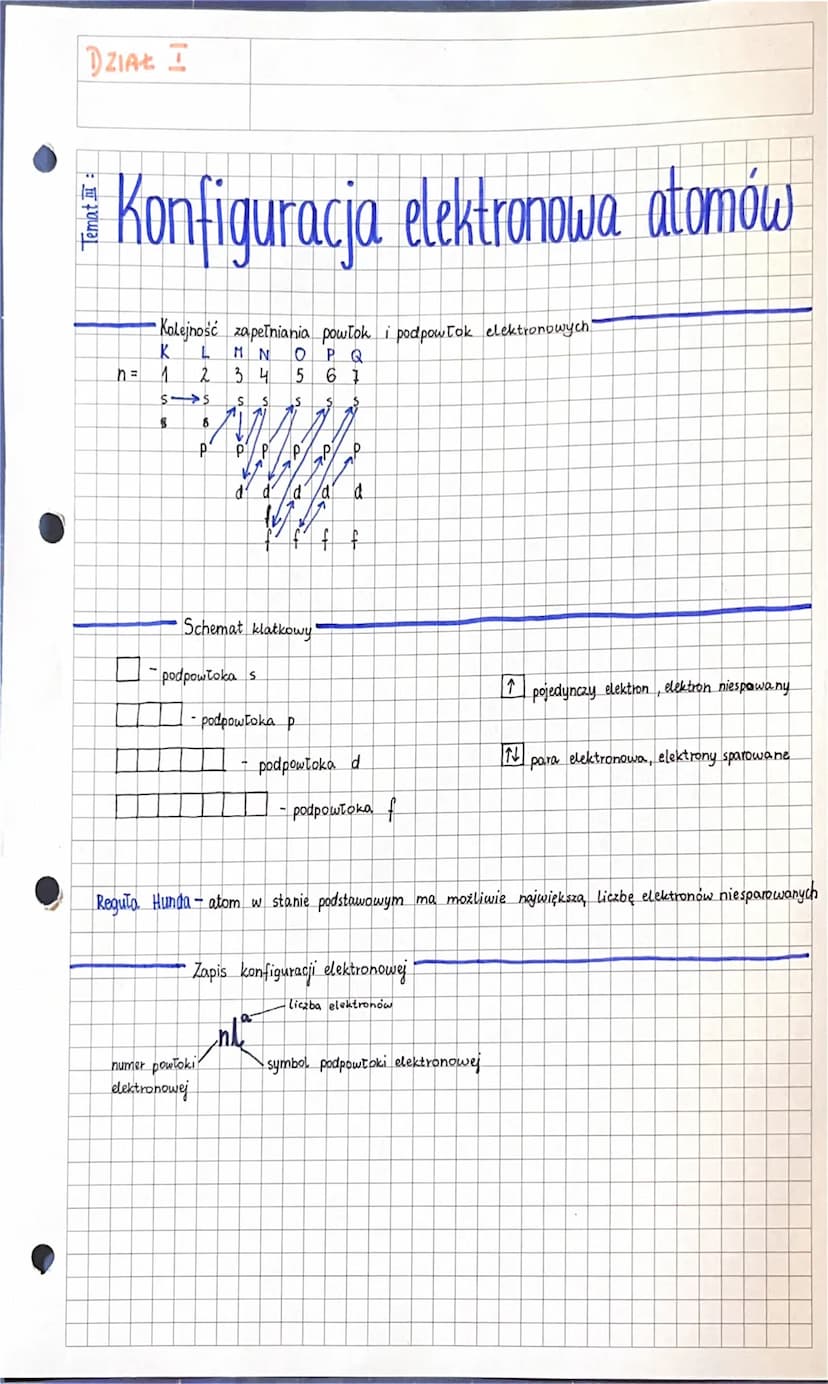 DZIAŁ I
Temat III:
Konfiguracja elektronowa atomów
Kolejność zapełniania powłok i podpowłok elektronowych
K L M N O P Q
n= 1 2 3 4 5 6 7
s s s s s s s
s s
p p p p p p
d d d d d
f f f f
Schemat klatkowy
- podpowłoka s
↑ pojedynczy elektron, elektron niespawany
- podpowłoka p
- podpowłoka d
↑↓ para elektronowa, elektrony sparowane
- podpowłoka f
Reguła Hunda - atom w stanie podstawowym ma możliwie największą liczbę elektronów niesparowanych
Zapis konfiguracji elektronowej
liczba elektronów
nlᵃ
numer powłoki
elektronowej
symbol podpowłoki elektronowej